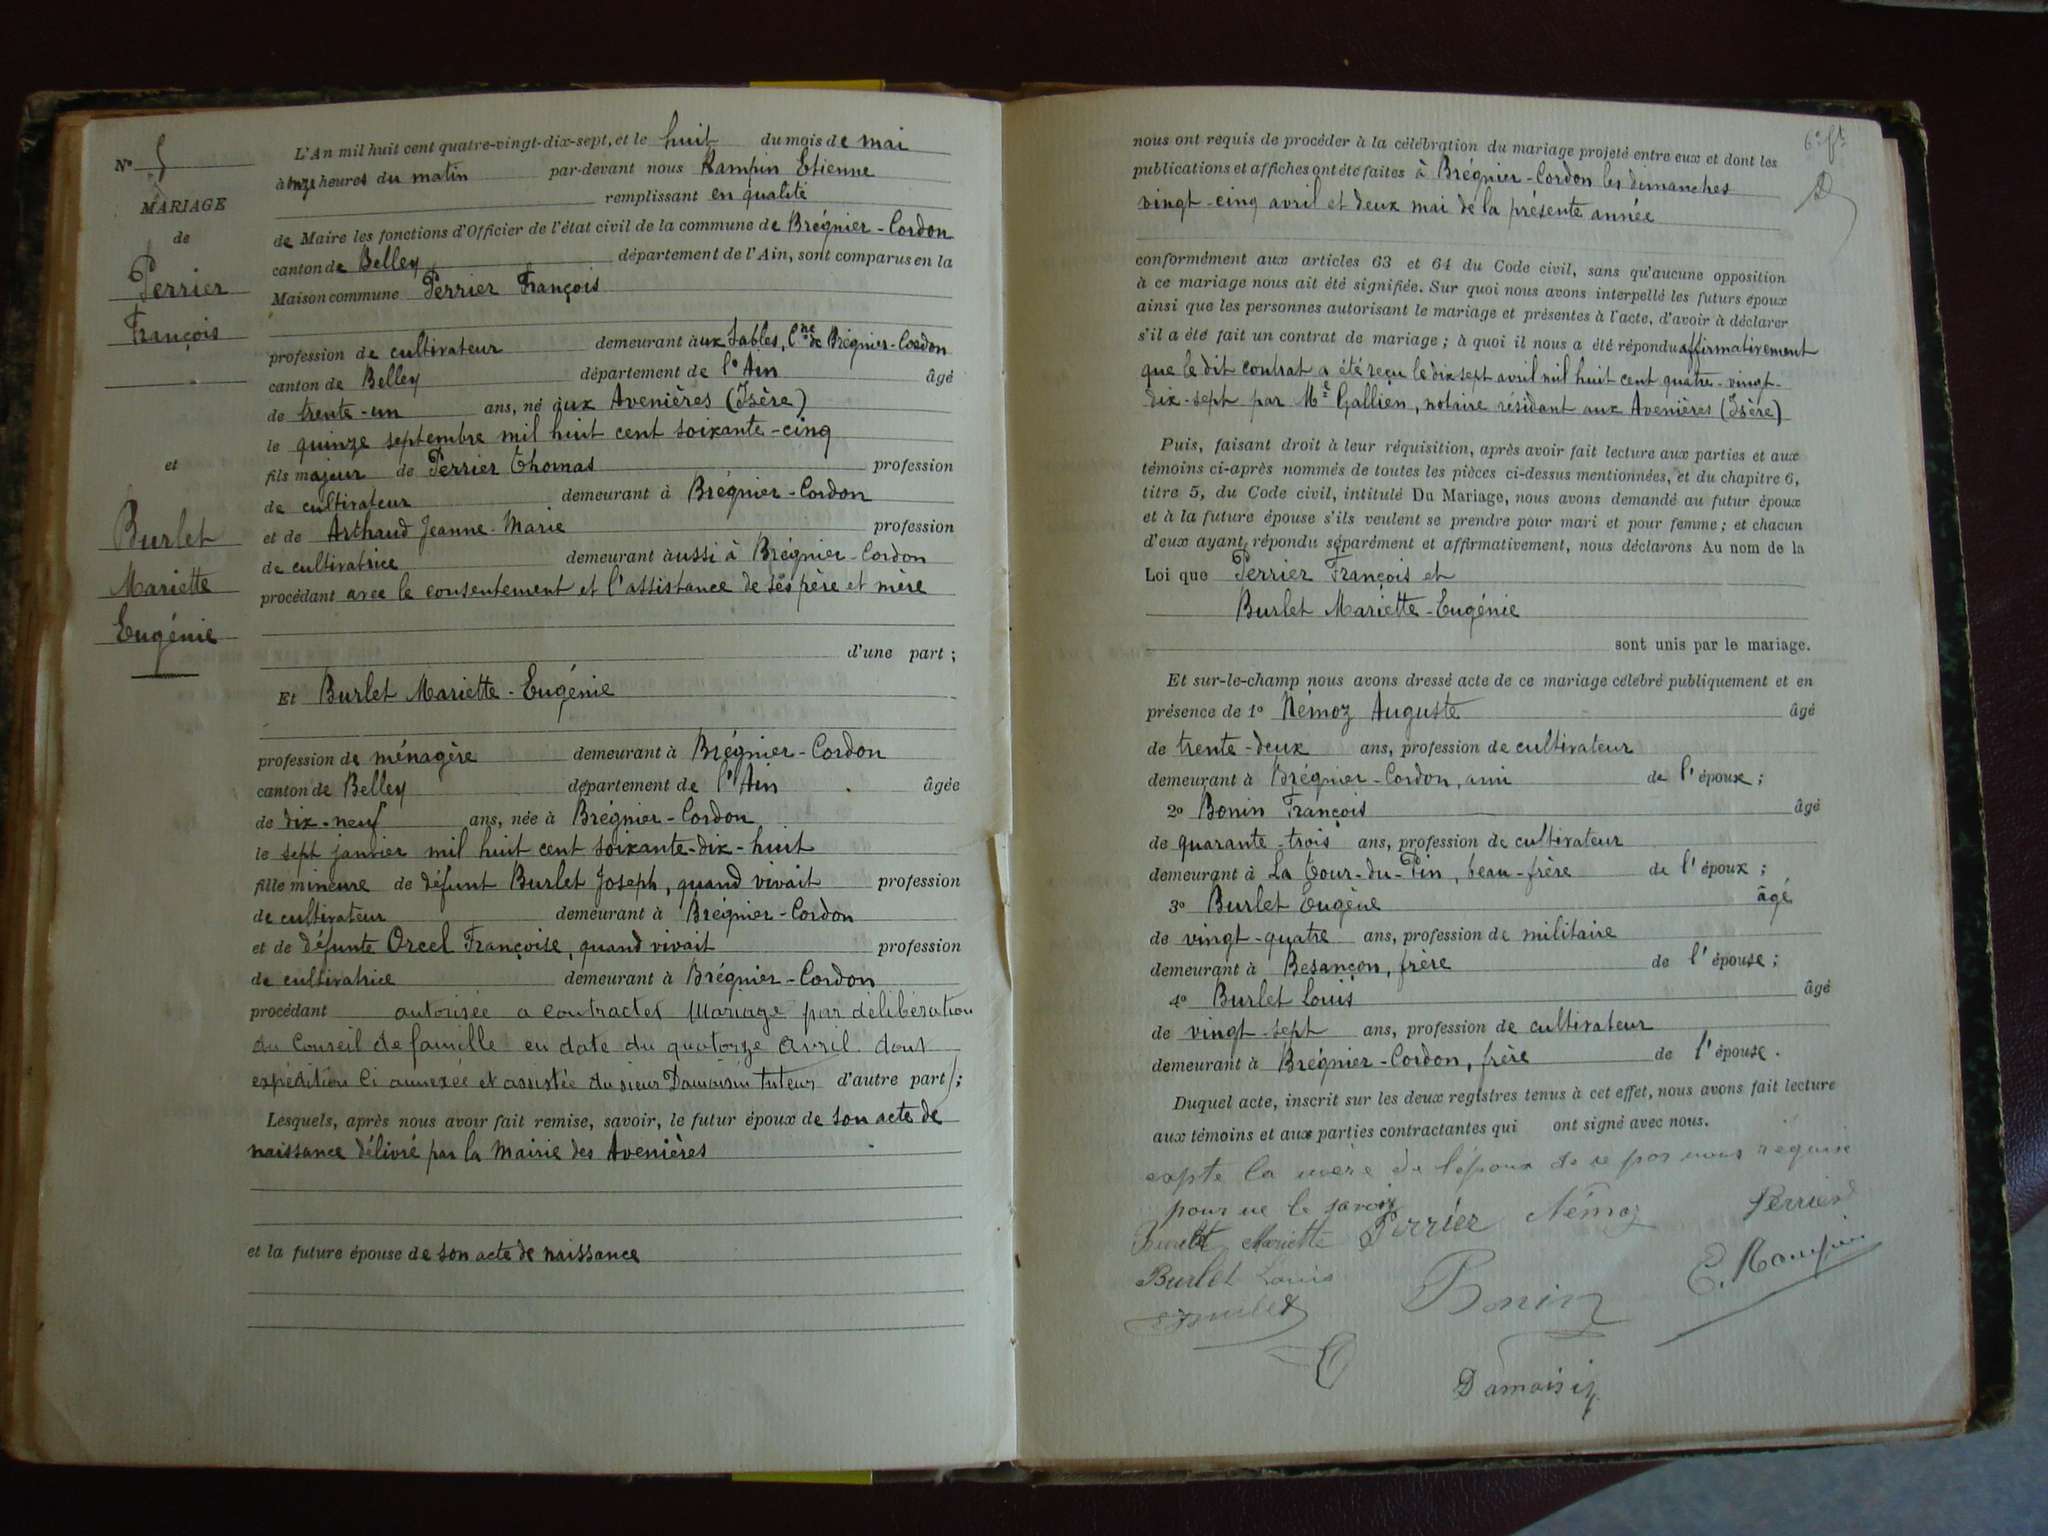 N° 5
MARIAGE
de
Perrier
François
et
Burlet
Mariette
Eugénie
L'An mil huit cent quatre-vingt-dix-sept, et le huit du mois de mai
à onze heures du matin par-devant nous Rampin Etienne
remplissant en qualité
de Maire les fonctions d'Officier de l'état civil de la commune de Brégnier-Cordon
canton de Belley département de l'Ain, sont comparus en la
Maison commune Perrier François
profession de cultivateur demeurant aux Sables, Cne de Brégnier-Cordon
canton de Belley département de l'Ain âgé
de trente-un ans, né aux Avenières (Isère)
le quinze septembre mil huit cent soixante-cinq
fils majeur de Perrier Thomas profession
de cultivateur demeurant à Brégnier-Cordon
et de Arthaud Jeanne-Marie profession
de cultivatrice demeurant aussi à Brégnier-Cordon
procédant avec le consentement et l'assistance de ses père et mère
d'une part ;
Et Burlet Mariette-Eugénie
profession de ménagère demeurant à Brégnier-Cordon
canton de Belley département de l'Ain âgée
de dix-neuf ans, née à Brégnier-Cordon
le sept janvier mil huit cent soixante-dix-huit
fille mineure de défunt Burlet Joseph, quand vivait profession
de cultivateur demeurant à Brégnier-Cordon
et de défunte Orcel Françoise, quand vivait profession
de cultivatrice demeurant à Brégnier-Cordon
procédant autorisée a contracter Mariage par délibération
du Conseil de famille en date du quatorze avril dont
expédition ci annexée et assistée du sieur Damaisin tuteur d'autre part ;
Lesquels, après nous avoir fait remise, savoir, le futur époux de son acte de
naissance délivré par la Mairie des Avenières
et la future épouse de son acte de naissance
6e ft
nous ont requis de procéder à la célébration du mariage projeté entre eux et dont les
publications et affiches ont été faites à Brégnier-Cordon les dimanches
vingt-cinq avril et deux mai de la présente année
conformément aux articles 63 et 64 du Code civil, sans qu'aucune opposition
à ce mariage nous ait été signifiée. Sur quoi nous avons interpellé les futurs époux
ainsi que les personnes autorisant le mariage et présentes à l'acte, d'avoir à déclarer
s'il a été fait un contrat de mariage ; à quoi il nous a été répondu affirmativement
que le dit contrat a été reçu le dix sept avril mil huit cent quatre-vingt-
dix-sept par Me Gallien, notaire résidant aux Avenières (Isère)
Puis, faisant droit à leur réquisition, après avoir fait lecture aux parties et aux
témoins ci-après nommés de toutes les pièces ci-dessus mentionnées, et du chapitre 6,
titre 5, du Code civil, intitulé Du Mariage, nous avons demandé au futur époux
et à la future épouse s'ils veulent se prendre pour mari et pour femme ; et chacun
d'eux ayant répondu séparément et affirmativement, nous déclarons Au nom de la
Loi que Perrier François et
Burlet Mariette-Eugénie
sont unis par le mariage.
Et sur-le-champ nous avons dressé acte de ce mariage célébré publiquement et en
présence de 1° Némoz Auguste âgé
de trente-deux ans, profession de cultivateur
demeurant à Brégnier-Cordon, ami de l'époux ;
2° Bonin François âgé
de quarante-trois ans, profession de cultivateur
demeurant à La Tour-du-Pin, beau-frère de l'époux ;
3° Burlet Eugène âgé
de vingt-quatre ans, profession de militaire
demeurant à Besançon, frère de l'épouse ;
4° Burlet Louis âgé
de vingt-sept ans, profession de cultivateur
demeurant à Brégnier-Cordon, frère de l'épouse.
Duquel acte, inscrit sur les deux registres tenus à cet effet, nous avons fait lecture
aux témoins et aux parties contractantes qui ont signé avec nous.
expte la mère de l'époux de ce par nous requise
pour ne le savoir
Burlet Mariette Perrier Némoz Perrier
Burlet Louis Bonin E. Rampin
E Burlet
Damaisin